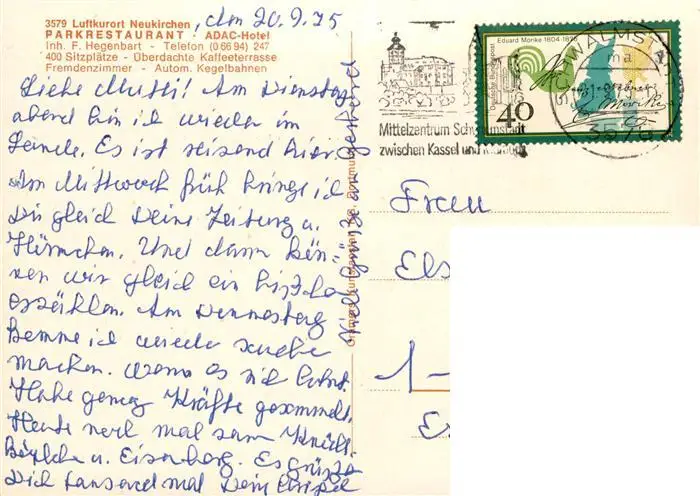 3579 Luftkurort Neukirchen
PARKRESTAURANT · ADAC-Hotel
Inh. F. Hegenbart - Telefon (0 66 94) 247
400 Sitzplätze - Überdachte Kaffeeterrasse
Fremdenzimmer - Autom. Kegelbahnen
, den 20.9.75
Liebe Mutti! Am Dienstag
abend bin ich wieder im
Es ist reizend hier.
Am Mittwoch früh bringe ich
Dir gleich Deine Zeitung u.
Hörnchen. Und dann kön-
nen wir gleich ein bißchen
erzählen. Am Donnerstag
komme ich wieder
machen, wenn es sich lohnt.
Habe genug Kräfte gesammelt.
Heute noch mal zum Knüll
u. Eisenberg. Es grüßt
Dich tausend mal Dein
Viele Grüße an
Eduard Mörike 1804-1875
Deutsche Bundespost
40
SCHWALMSTADT
ma
3578
Mittelzentrum Schwalmstadt
zwischen Kassel und Marburg
Frau
Els
1-